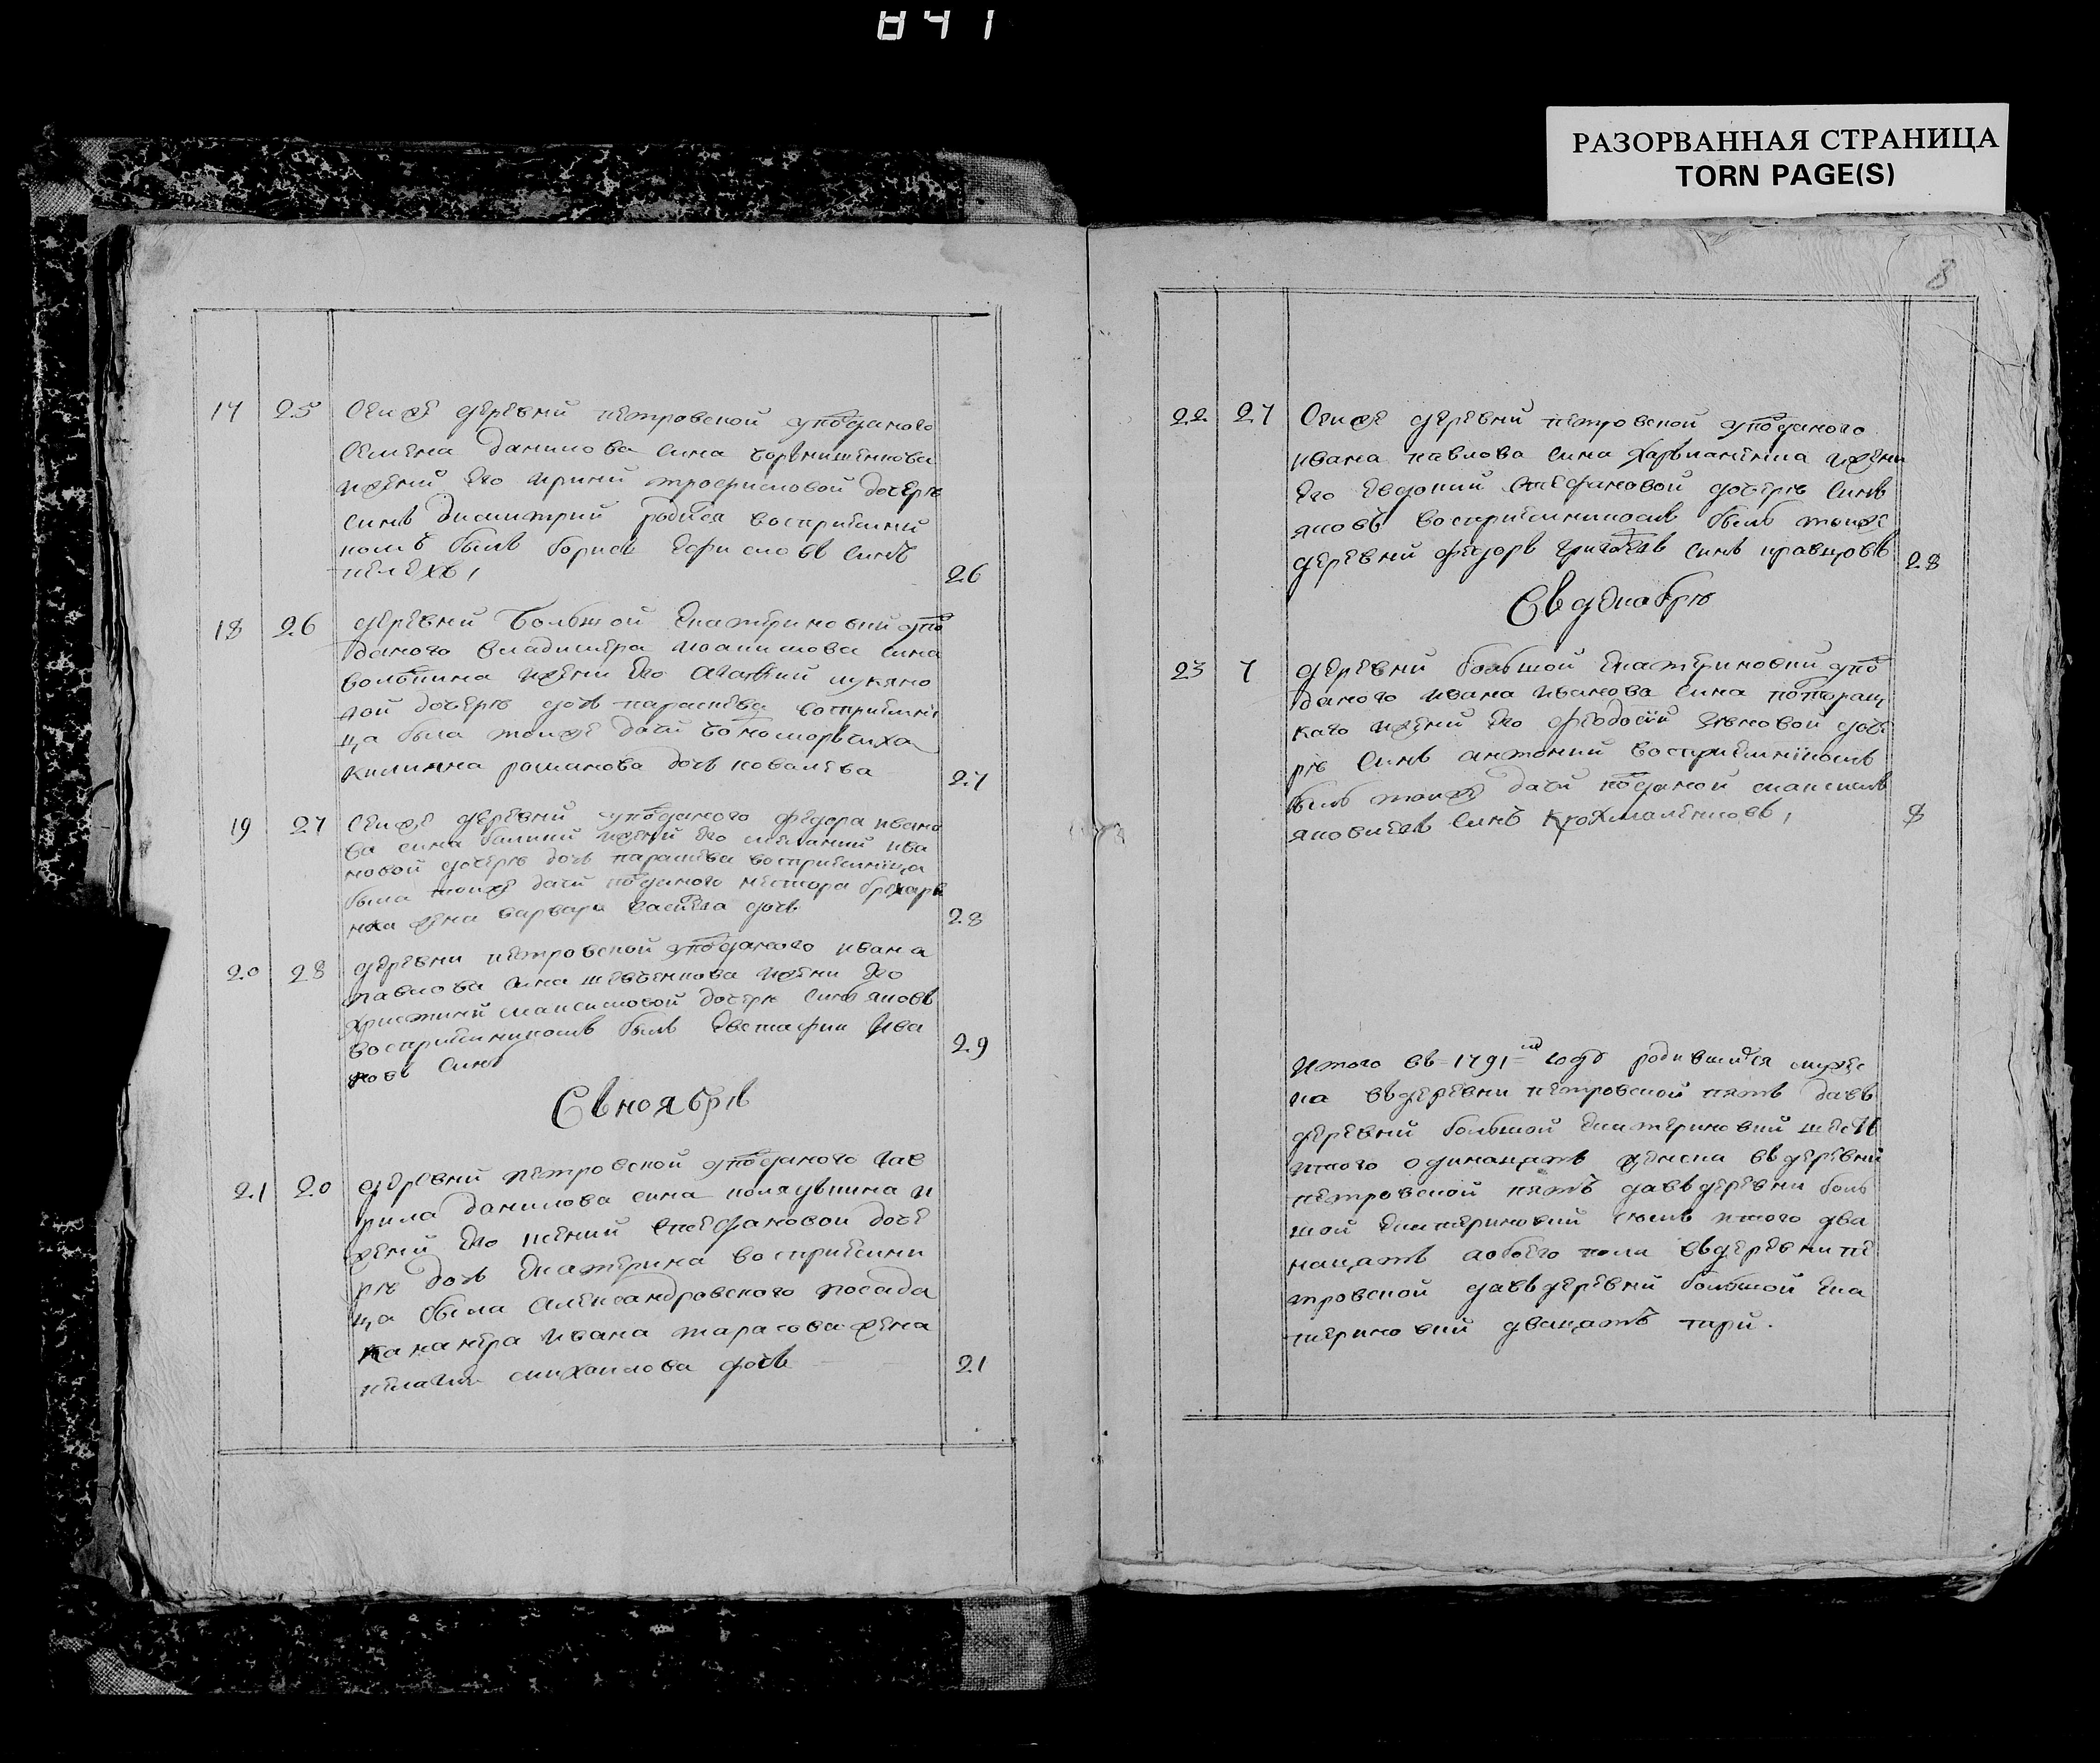 841
РАЗОРВАННАЯ СТРАНИЦА
TORN PAGE(S)
17 25 Сеиже деревни петровской уподаного
Семена данилова сина
ижени его ирини трофимовой дочерю
синъ димитрий родися восприемни
комъ былъ борисъ ефимовъ синъ
26
18 26 деревни Большой екатериновки упо
даного владимера сина
волошина ижени его агафии лукяно
вой дочерю дочь параскева восприемни
ца была тоиже дачи
килияна романова дочь ковалева 27
19 27 Сеиже деревни уподаного федора ивано
ва сина ижени его мелании ива
новой дочерю дочь параскева восприемница
была тоиже дачи поданого нестора
жена варвара дочь 28
20 28 деревни петровской уподаного ивана
павлова сина шевченкова ижени его
христини максимовой дочерю синъ яковъ
восприемникомъ былъ евстафии ива
новъ синъ 29
Свноябрѣ
21 20 деревни петровской уподаного гав
рила данилова сина и
жени его ксении стефановой доче
рю дочь екатерина восприемни
ца была александровского посада
ивана тарасова жена
михаилова дочь 21
8
22 27 Сеиже деревни петровской уподаного
ивана павлова сина ижени
его евдокии стефановой дочерю синъ
яковъ восприемникомъ былъ тоиже
деревни федоръ синъ кравцовъ 28
Свдекабрѣ
23 7 деревни большой екатериновки упо
даного ивана иванова сина
каго ижени его феодосии доче
рю синъ антоний восприемникомъ
былъ тоиже дачи поданой максимъ
яковлевъ синъ крохмаленковъ, 8
итого въ 1791 году родившися мужес
ка въдеревни петровской пять давъ
деревни большой екатериновки шесть
итого одинацать женска въдеревни
петровской пять давъдеревни боль
шой екатериновки семь итого два
нацать аобоего пола въдеревни пе
тровской давъдеревни большой ека
териновки дванцать три.